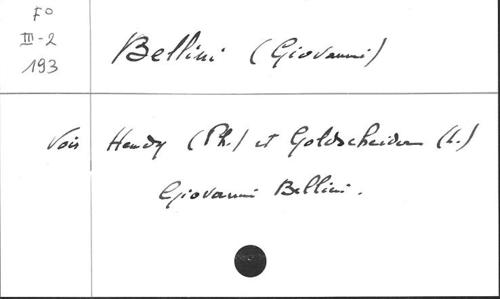 F°
III-2
193
Bellini (Giovanni)
Voir Hendy (Ph.) et Goldscheider (L.)
Giovanni Bellini.